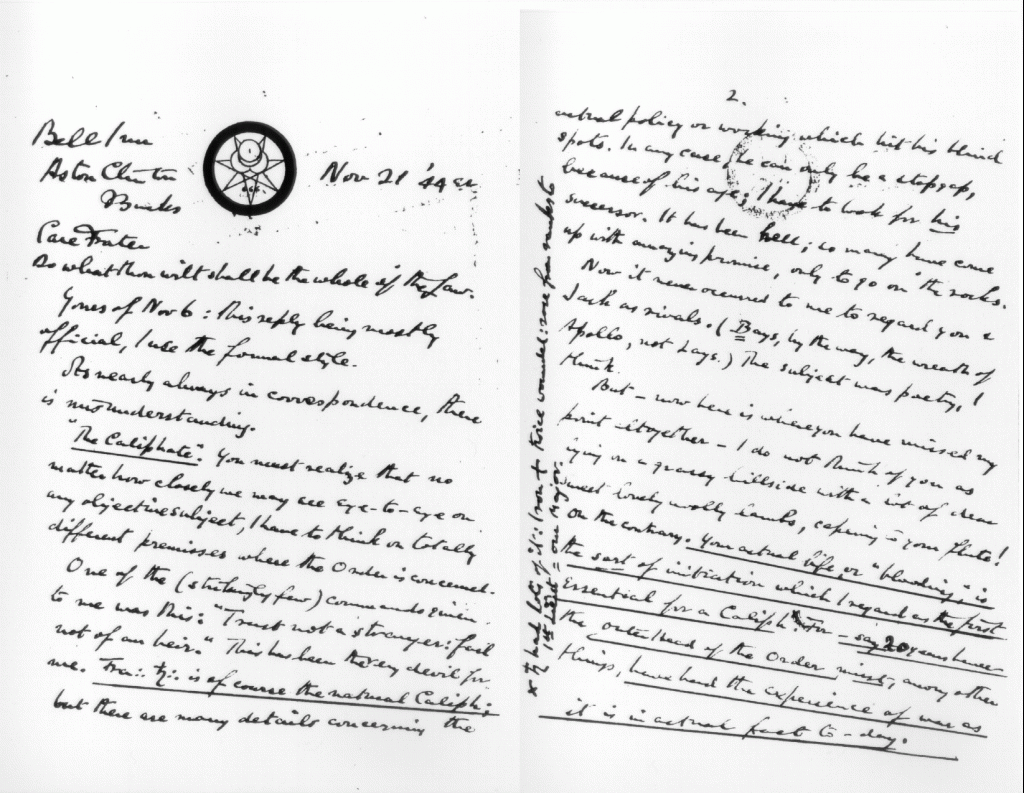 Bell Inn
Aston Clinton
Bucks
Nov 21 '44 e.v.
666
Care Frater
Do what thou wilt shall be the whole of the Law.
Yours of Nov 6 : this reply being mostly
official, I use the formal style.
As nearly always in correspondence, there
is misunderstanding.
"The Caliphate". You must realize that no
matter how closely we may see eye-to-eye on
any objective subject, I have to think on totally
different premisses where the Order is concerned.
One of the (strikingly few) commands given
to me was this: "Trust not a stranger: fail
not of an heir." This has been the very devil for
me. Fra∴ ♄∴ is of course the natural Caliph;
but there are many details concerning the
2.
actual policy or working which hit his blind
spots. In any case, he can only be a stopgap,
because of his age; I have to look for his
successor. It has been hell; so many have come
up with amazing promise, only to go on the rocks.
Now it never occurred to me to regard you &
Jack as rivals. (Bays, by the way, the wreath of
Apollo, not Lays.) The subject was poetry, I
think.
But – now here is where you have missed my
point altogether – I do not think of you as
lying on a grassy hillside with a lot of dear
sweet lovely woolly lambs, capering to your flute!
On the contrary. Your actual life, or "blooding," is
the sort of initiation which I regard as the first
essential for a Caliph. For – say 20 years hence
the outer Head of the Order must, among other
things, have had the experience of war as
it is in actual fact to-day.
x ♄ had lots of it: Iron + twice wounded: rose from ranks to
1st Lieut = our Major.